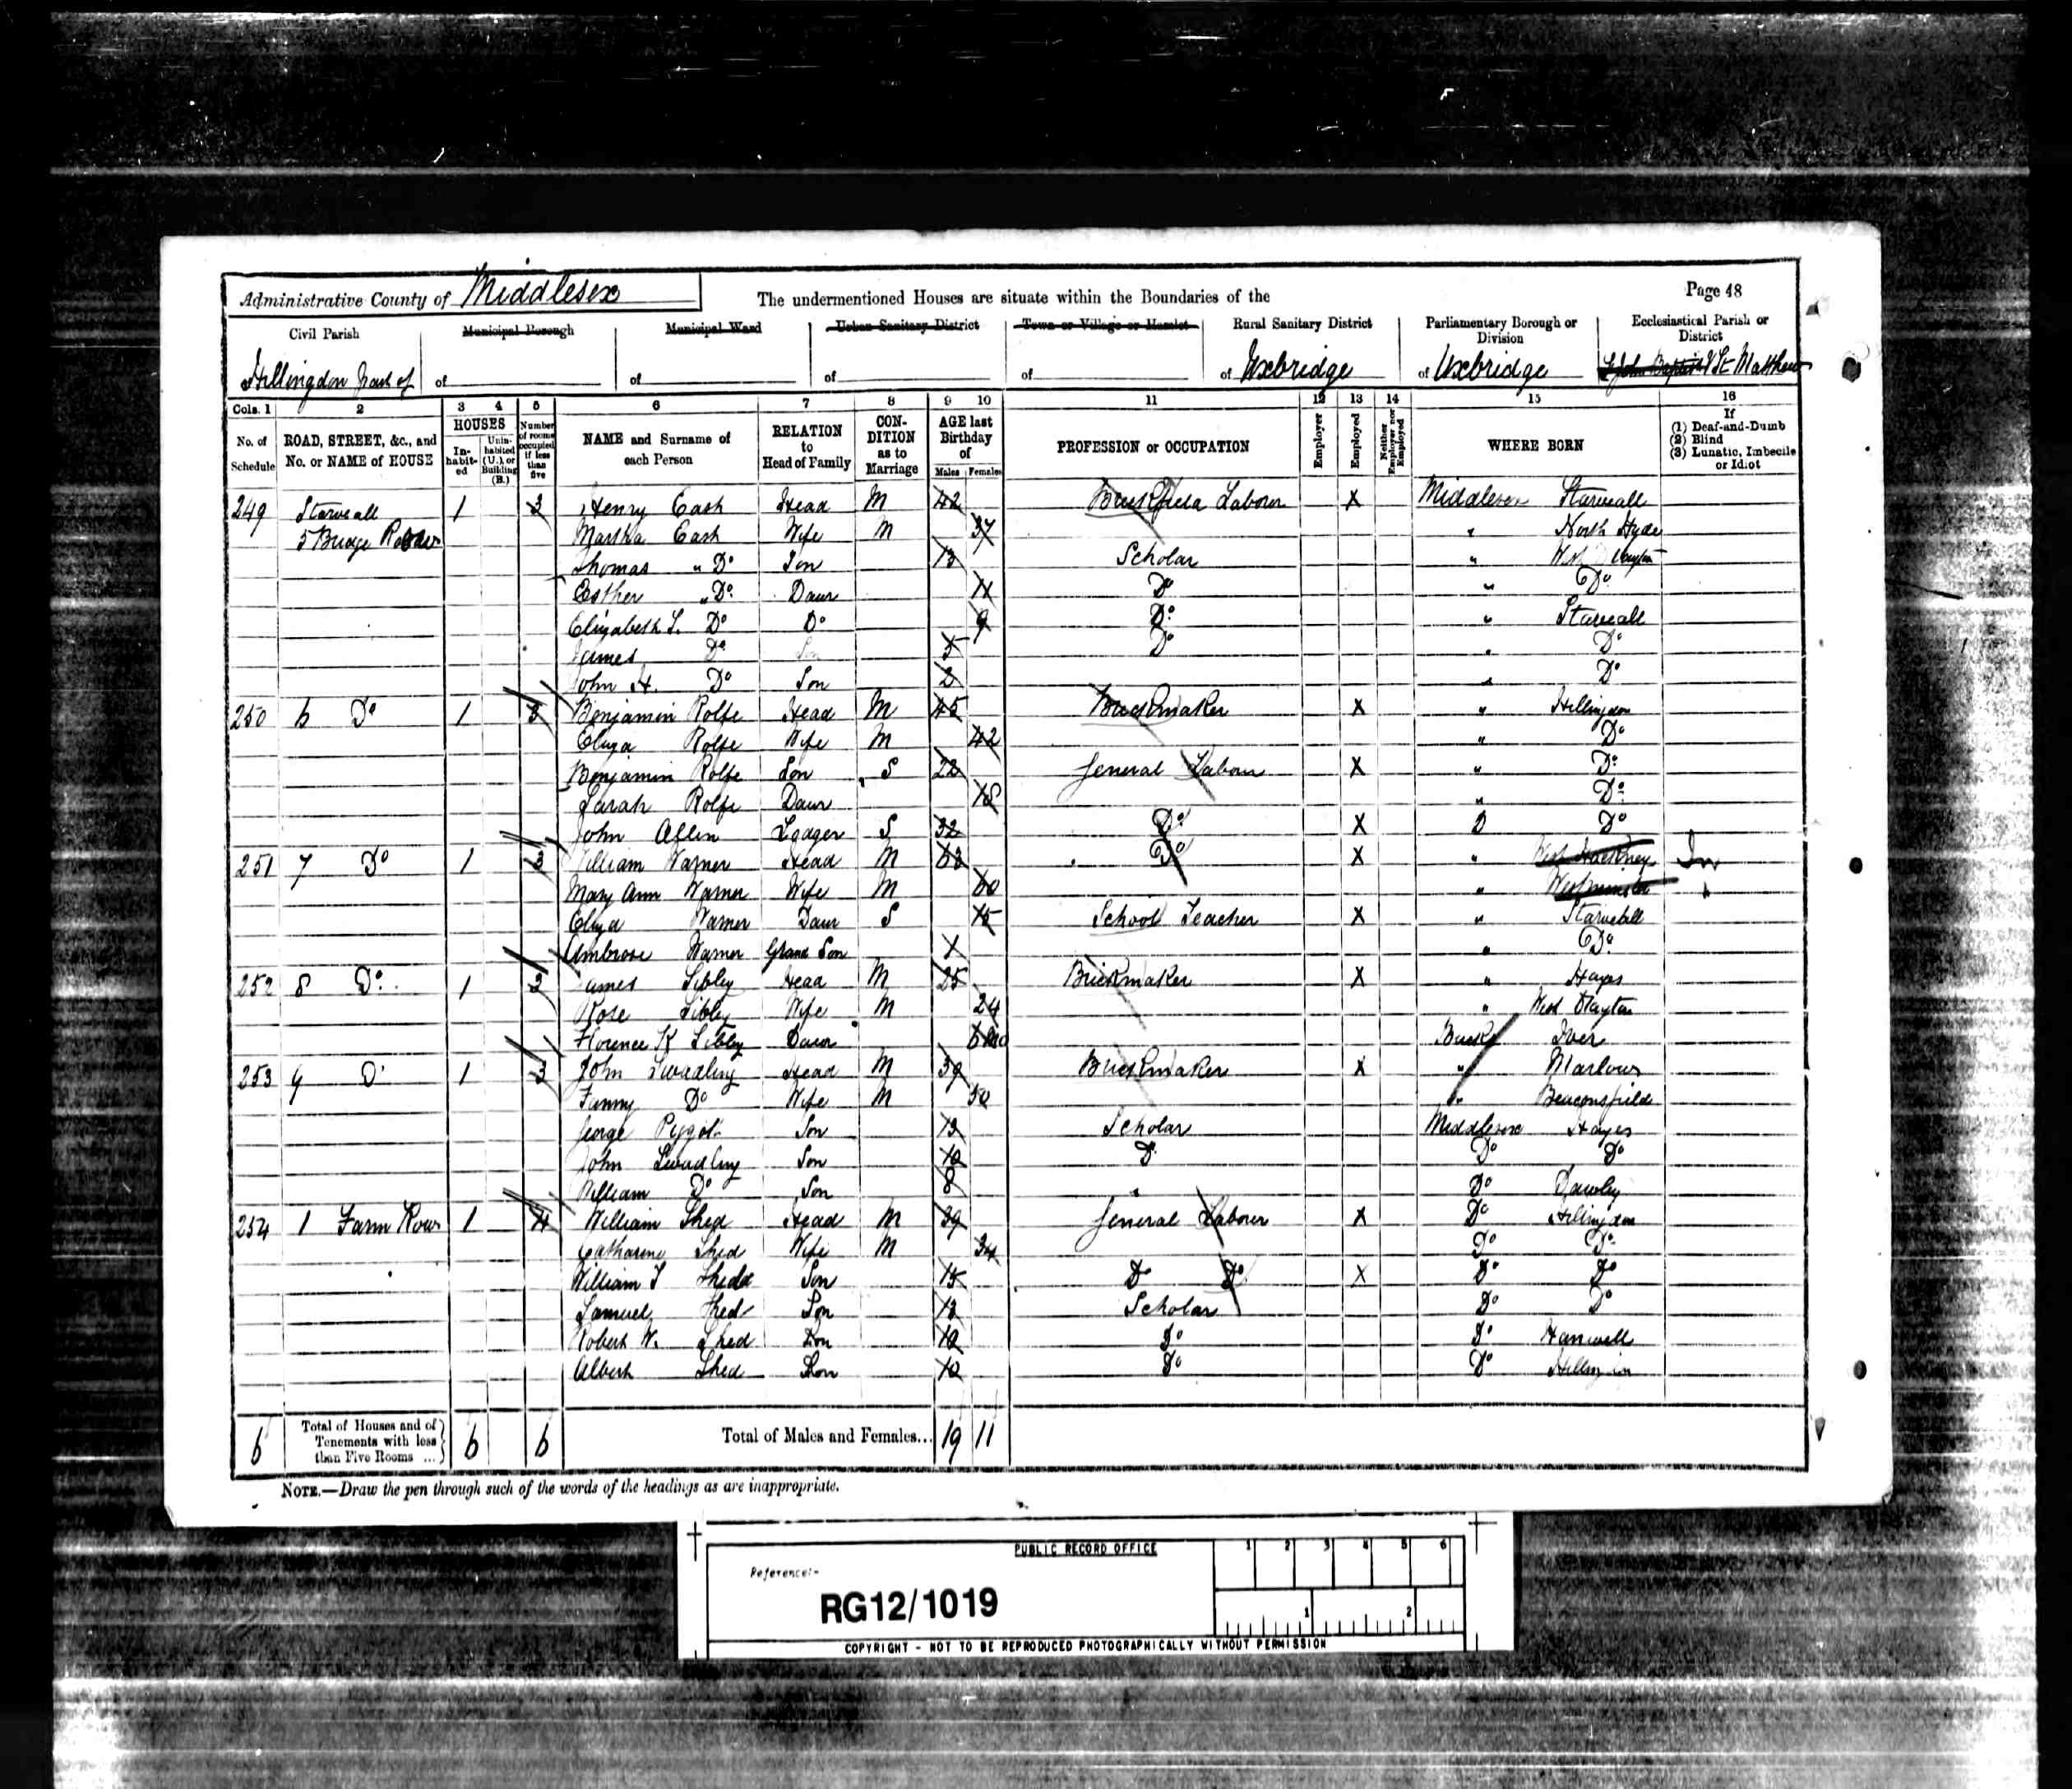 Administrative County of Middlesex The undermentioned Houses are situate within the Boundaries of the Page 48
Civil Parish Municipal Borough Municipal Ward Urban Sanitary District Town or Village or Hamlet Rural Sanitary District Parliamentary Borough or Division Ecclesiastical Parish or District
Hillingdon part of of of of of of Uxbridge of Uxbridge St John Baptist St Matthew
Cols. 1 2 3 4 5 6 7 8 9 10 11 12 13 14 15 16
No. of Schedule ROAD, STREET, &c., and No. or NAME of HOUSE HOUSES Inhabited Uninhabited (U.), or Building (B.) Number of rooms occupied if less than five NAME and Surname of each Person RELATION to Head of Family CONDITION as to Marriage AGE last Birthday of Males Females PROFESSION or OCCUPATION Employer Employed Neither Employer nor Employed WHERE BORN If (1) Deaf-and-Dumb (2) Blind (3) Lunatic, Imbecile or Idiot
249 Starveall 1 3 Henry Cash Head M 42 Brickfield Labour X Middlesex Starveall
5 Bridge Martha Cash Wife M 37 " North Hyde
Thomas " Do Son 13 Scholar " West Drayton
Esther " Do Daur 11 Do " Do
Elizabeth Do Do 9 Do " Starveall
James Do Son 5 Do " Do
John H. Do Son 2 " Do
250 6 Do 1 3 Benjamin Rolfe Head M 45 Brickmaker X " Hillingdon
Eliza Rolfe Wife M 42 " Do
Benjamin Rolfe Son S 22 General Labour X " Do
Sarah Rolfe Daur 18 " Do
John Allen Lodger S 32 Do X D Do
251 7 Do 1 3 William Warner Head M 62 Do X " West Hackney
Mary Ann Warner Wife M 60 " Westminster "
Eliza Warner Daur S 15 School Teacher X " Starveall
Ambrose Warner Grand Son 1 " Do
252 8 Do 1 3 James Sibley Head M 25 Brickmaker X " Hayes
Rose Sibley Wife M 24 " West Drayton
Florence K Sibley Daur Bucks Iver
253 9 Do 1 3 John Swadling Head M 39 Brickmaker X " Marlow
Fanny Do Wife M 30 " Beaconsfield
George Pygot Son 13 Scholar Middlesex Hayes
John Swadling Son 10 Do Do Do
William Do Son 8 " Do Dawley
254 1 Farm Row 1 4 William Shed Head M 39 General Labour X Do Hillingdon
Catharine Shed Wife M 34 Do Do
William Shedd Son 15 Do Do X Do Do
Samuel Shed Son 13 Scholar Do Do
Robert W. Shed Son 12 Do Do Hanwell
Albert Shed Son 10 Do Do Hillingdon
6 Total of Houses and of Tenements with less than Five Rooms ... 6 6 Total of Males and Females... 19 11
NOTE.—Draw the pen through such of the words of the headings as are inappropriate.
PUBLIC RECORD OFFICE 1 2 3 4 5 6
Reference:-
RG12/1019 1 2
COPYRIGHT - NOT TO BE REPRODUCED PHOTOGRAPHICALLY WITHOUT PERMISSION